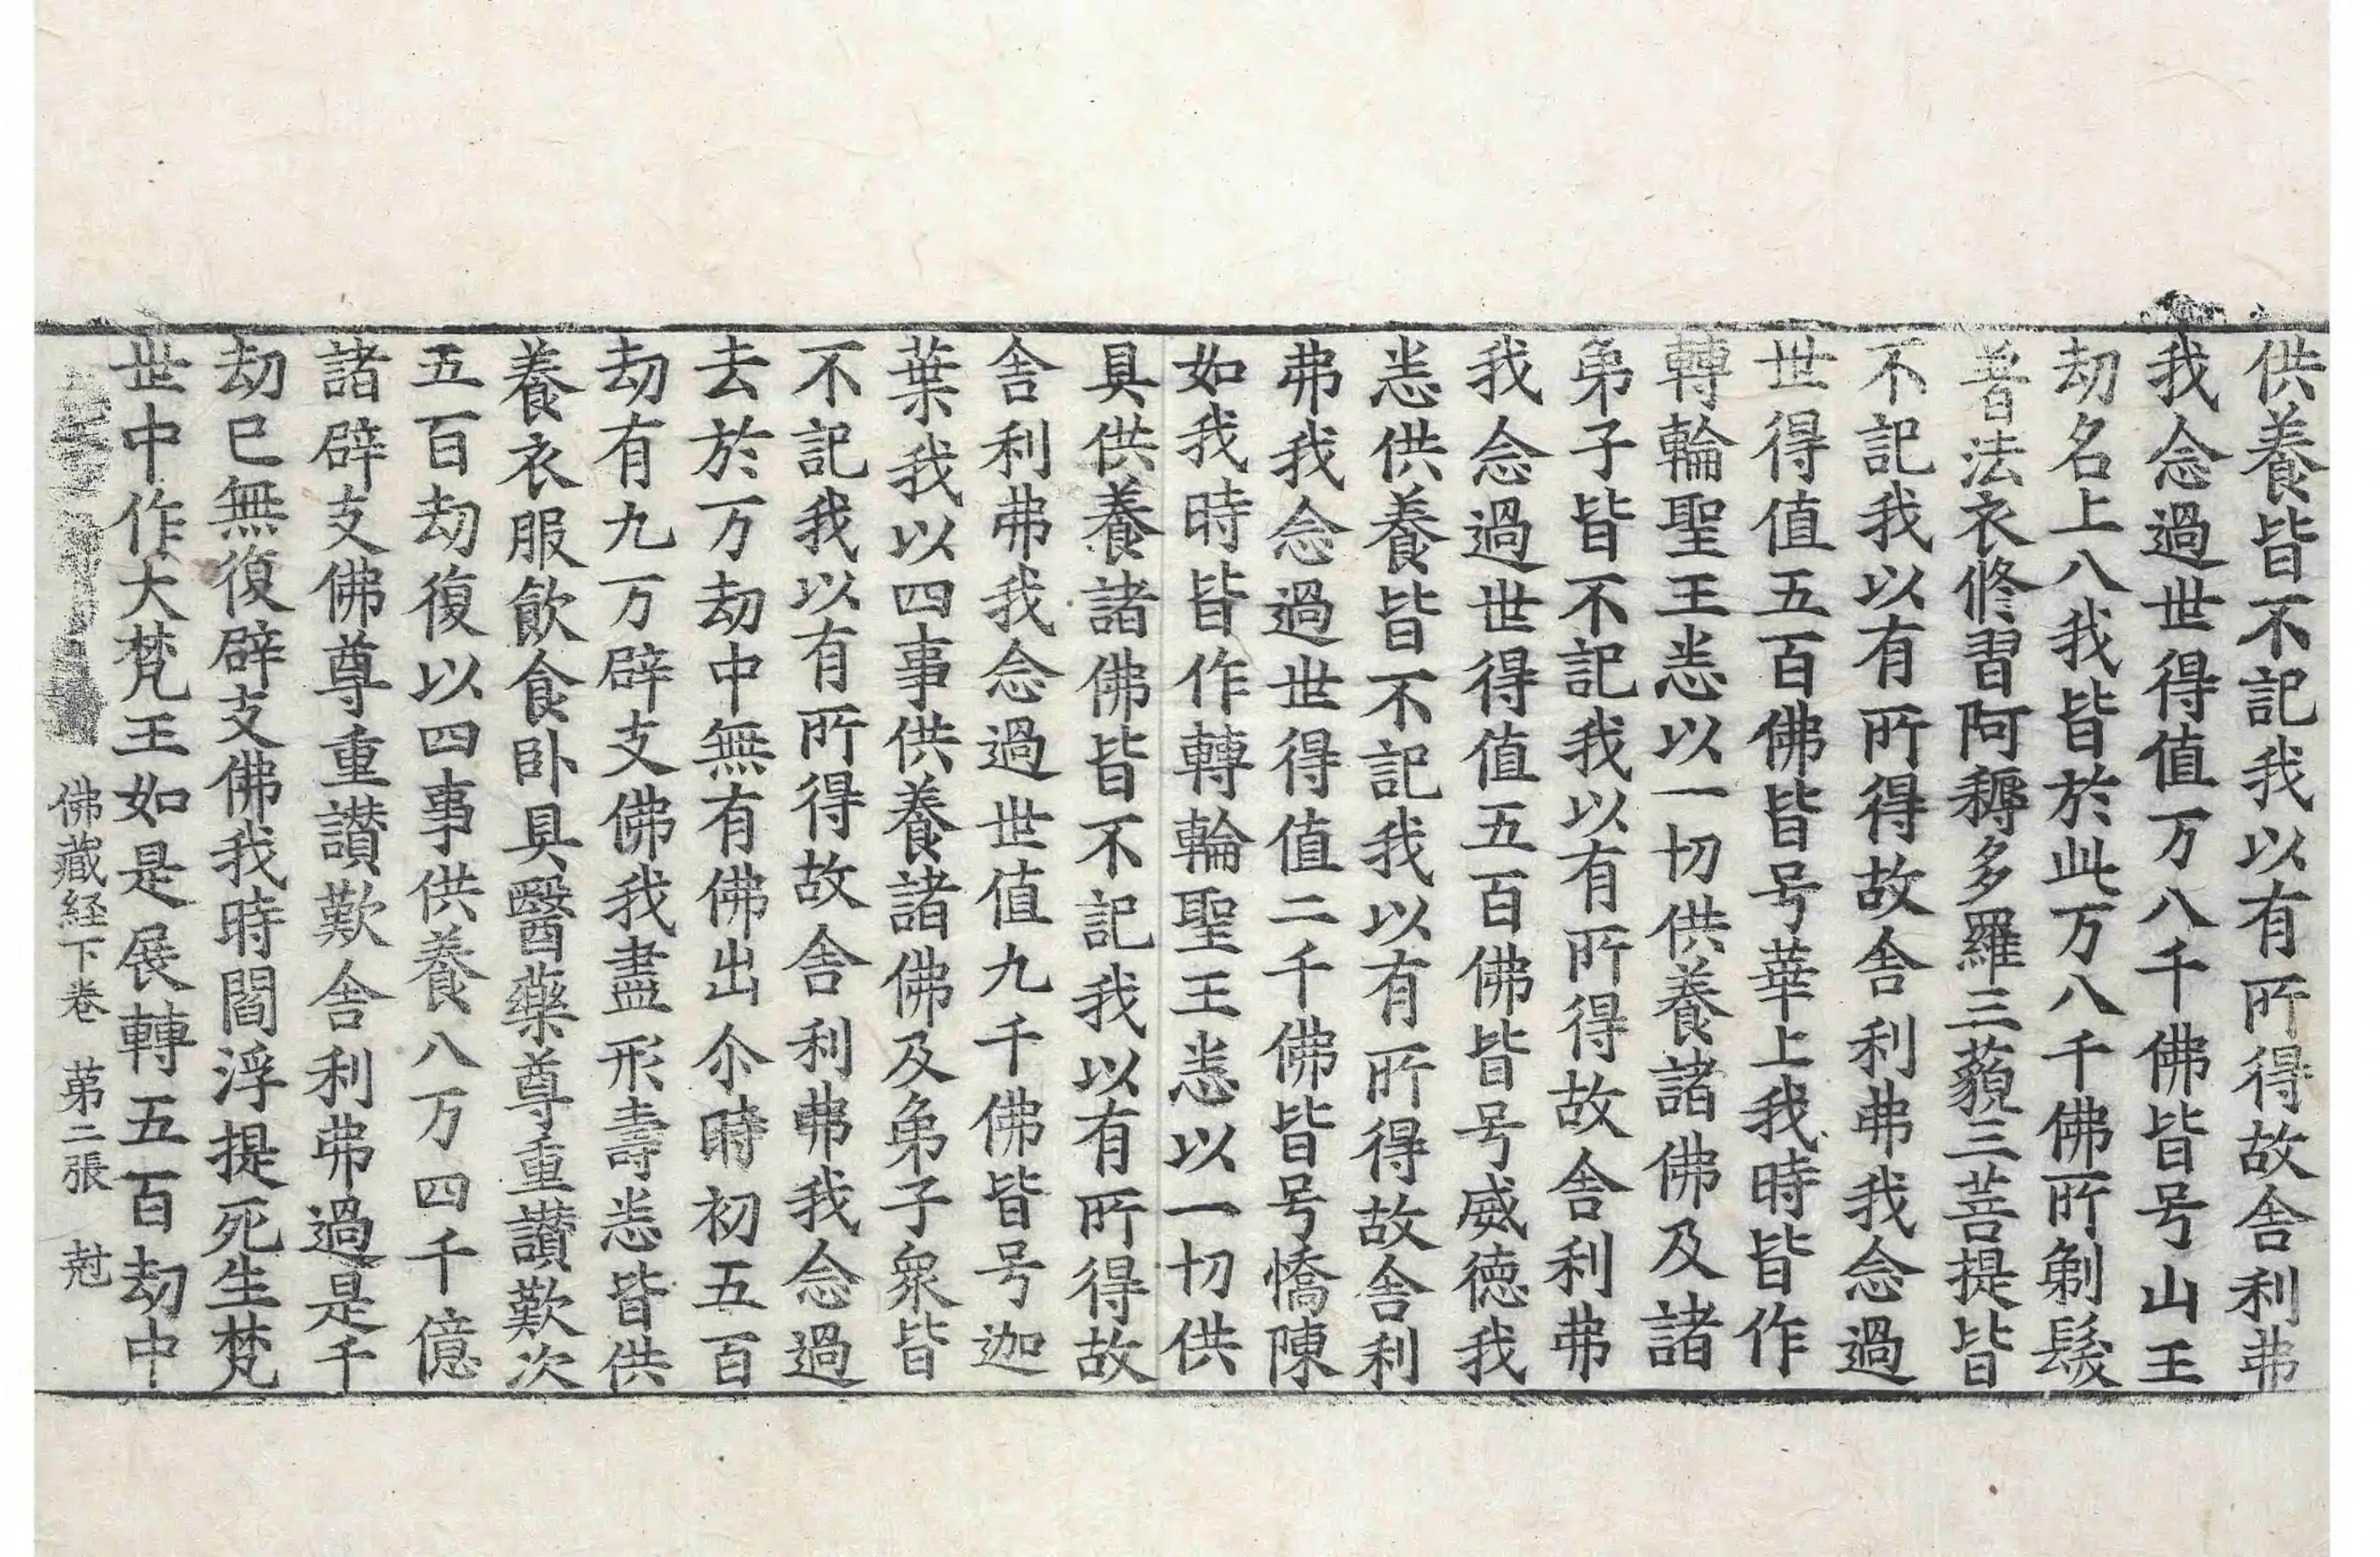 供養皆不記我以有所得故舍利弗
我念過世得值万八千佛皆号山王
劫名上八我皆於此万八千佛所剃髮
著法衣修習阿耨多羅三藐三菩提皆
不記我以有所得故舍利弗我念過
世得值五百佛皆号華上我時皆作
轉輪聖王悉以一切供養諸佛及諸
弟子皆不記我以有所得故舍利弗
我念過世得值五百佛皆号威德我
悉供養皆不記我以有所得故舍利
弗我念過世得值二千佛皆号憍陳
如我時皆作轉輪聖王悉以一切供
具供養諸佛皆不記我以有所得故
舍利弗我念過世值九千佛皆号迦
葉我以四事供養諸佛及弟子衆皆
不記我以有所得故舍利弗我念過
去於万劫中無有佛出尒時初五百
劫有九万辟支佛我盡形壽悉皆供
養衣服飲食卧具醫藥尊重讃歎次
五百劫復以四事供養八万四千億
諸辟支佛尊重讃歎舍利弗過是千
劫已無復辟支佛我時閻浮提死生梵
世中作大梵王如是展轉五百劫中
佛藏経下卷 苐二張 尅